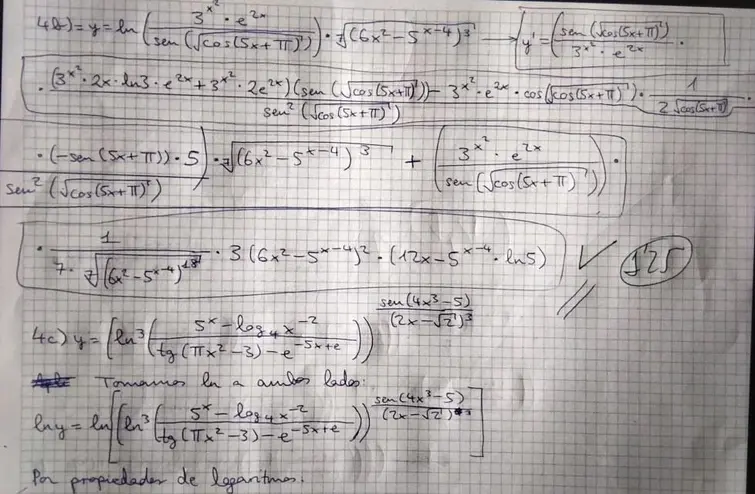 4b) y = ln (3^x² · e^2x / sen(√cos(5x+π))) · ⁷√(6x² − 5^(x−4))³ → y' = (sen(√cos(5x+π)) / 3^x² · e^2x) ·
· ((3^x² · 2x · ln3 · e^2x + 3^x² · 2e^2x)(sen(√cos(5x+π))) − 3^x² · e^2x · cos(√cos(5x+π)) · 1 / 2√cos(5x+π) ·
sen²(√cos(5x+π))
· (−sen(5x+π)) · 5) · ⁷√(6x² − 5^(x−4))³ + (3^x² · e^2x / sen(√cos(5x+π))) ·
sen²(√cos(5x+π))
· 1 / 7 · ⁷√(6x² − 5^(x−4))^18 · 3(6x² − 5^(x−4))² · (12x − 5^(x−4) · ln5) ✓ 1'25
4c) y = [ln³(5^x − log₄ x^−2 / tg(πx² − 3) − e^(−5x+e))]^(sen(4x³−5) / (2x−√2)³)
Tomamos ln a ambos lados:
ln y = ln[(ln³(5^x − log₄ x^−2 / tg(πx² − 3) − e^(−5x+e)))^(sen(4x³−5) / (2x−√2))]
Por propiedades de logaritmos: